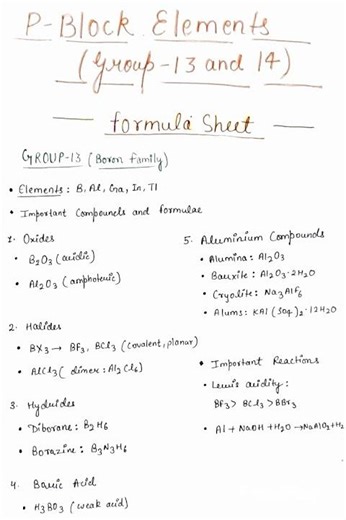 P-Block Elements
(Group-13 and 14)
formula Sheet
GROUP-13 (Boron family)
• Elements: B, Al, Ga, In, Tl
• Important Compounds and formulae
1. Oxides
• B₂O₃ (acidic)
• Al₂O₃ (amphoteric)
2. Halides
• BX₃ → BF₃, BCl₃ (covalent, planar)
• AlCl₃ (dimer: Al₂Cl₆)
3. Hydrides
• Diborane: B₂H₆
• Borazine: B₃N₃H₆
4. Boric Acid
• H₃BO₃ (weak acid)
5. Aluminium Compounds
• Alumina: Al₂O₃
• Bauxite: Al₂O₃·2H₂O
• Cryolite: Na₃AlF₆
• Alums: KAl(SO₄)₂·12H₂O
• Important Reactions
• Lewis acidity:
BF₃ > BCl₃ > BBr₃
• Al + NaOH + H₂O → NaAlO₂ + H₂